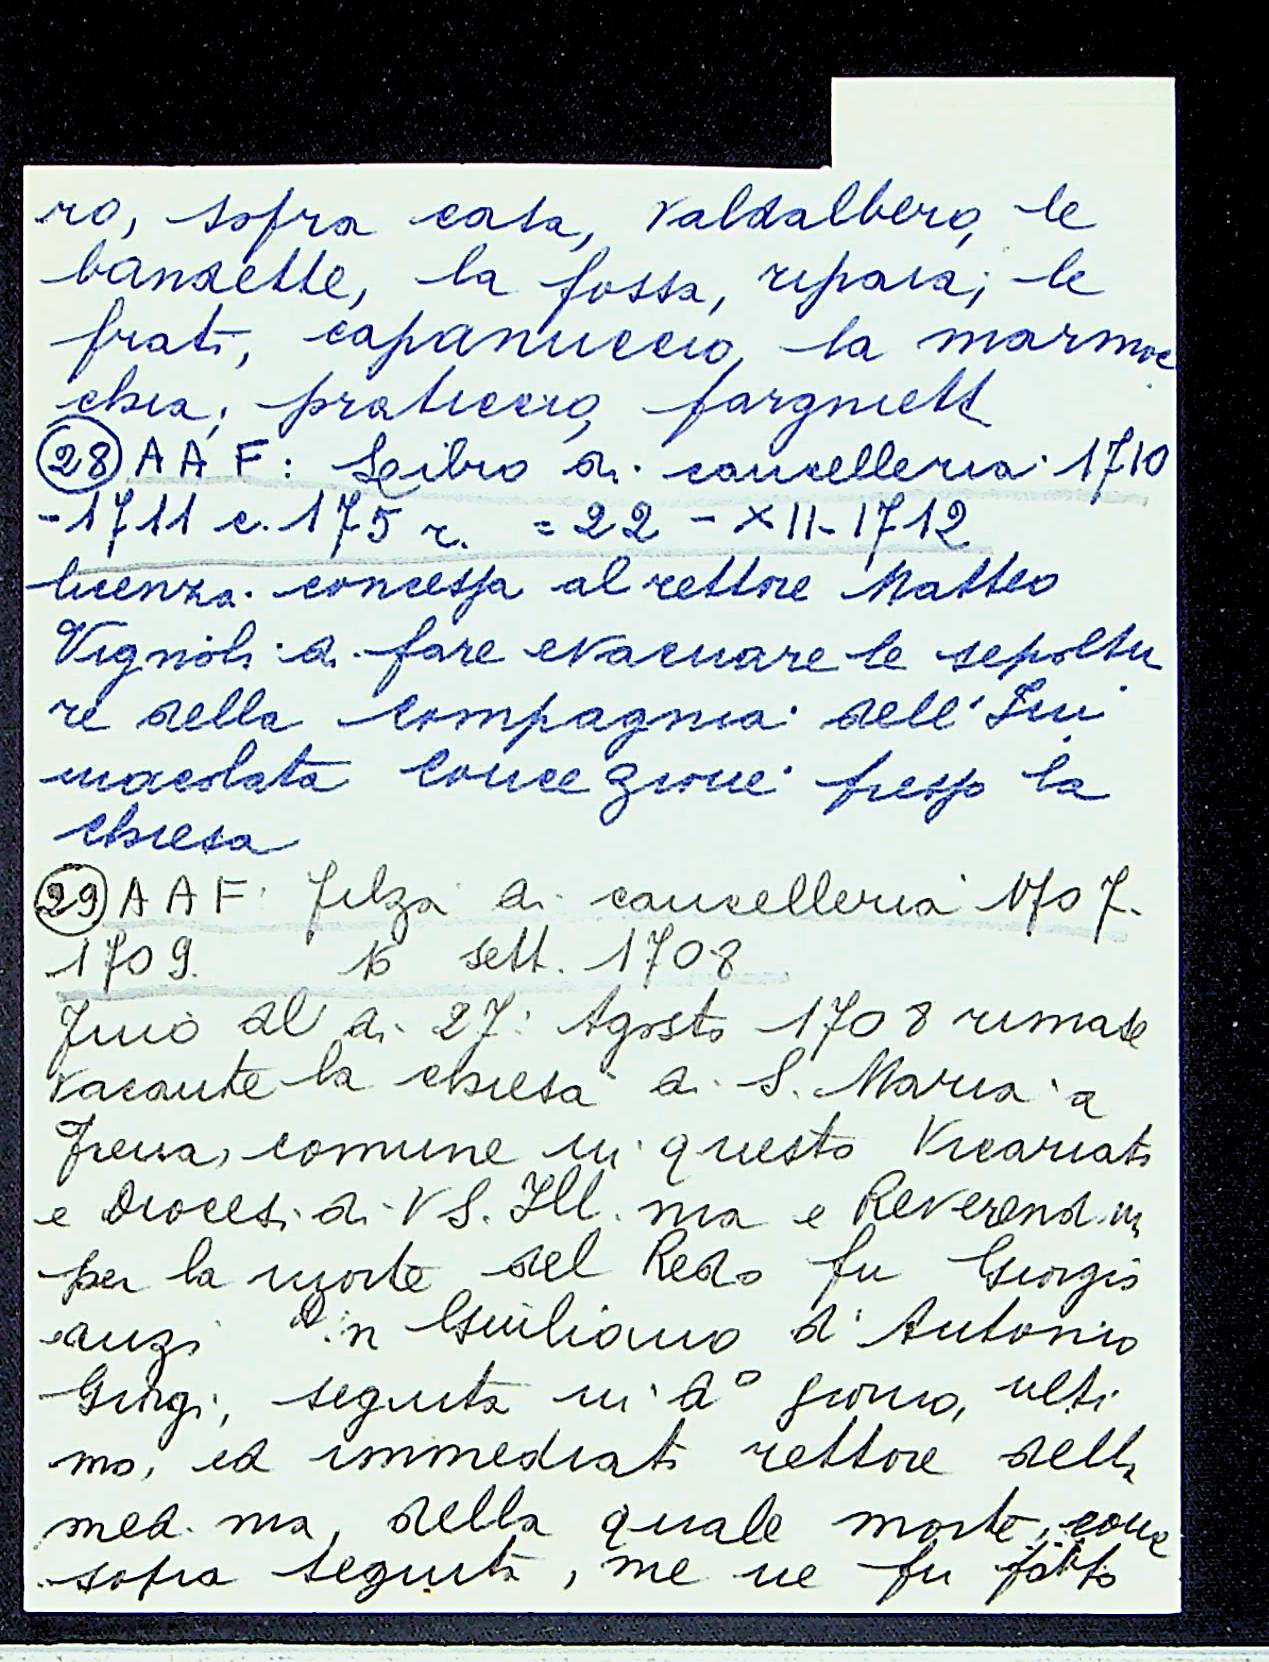 ro, sopra casa, Valdalbero, le
bandette, la fossa, ripaia; le
frati, capannuccio, la marmoc
chia; praticcio,
(28) AAF: Libro di cancelleria 1710
-1711 c. 175 r. = 22 - XII - 1712
licenza concessa al rettore Matteo
Vignoli di fare evacuare le sepoltu
re della compagnia dell'Im
macolata Concezione presso la
chiesa
(29) AAF: Filza di cancelleria 1707-
1709. sett. 1708
Fino al di 27 Agosto 1708 rimase
vacante la chiesa di S. Maria a
comune in questo Vicariato
e Diocesi di VS. Ill.ma e Reverend.m
per la morte del Redo fu Giorgio
anzi Giuliano d'Antonio
Giorgi, seguita in do giorno, ulti
mo, ed immediato rettore della
med.ma, della quale morte, come
sopra seguita, me ne fu fatto